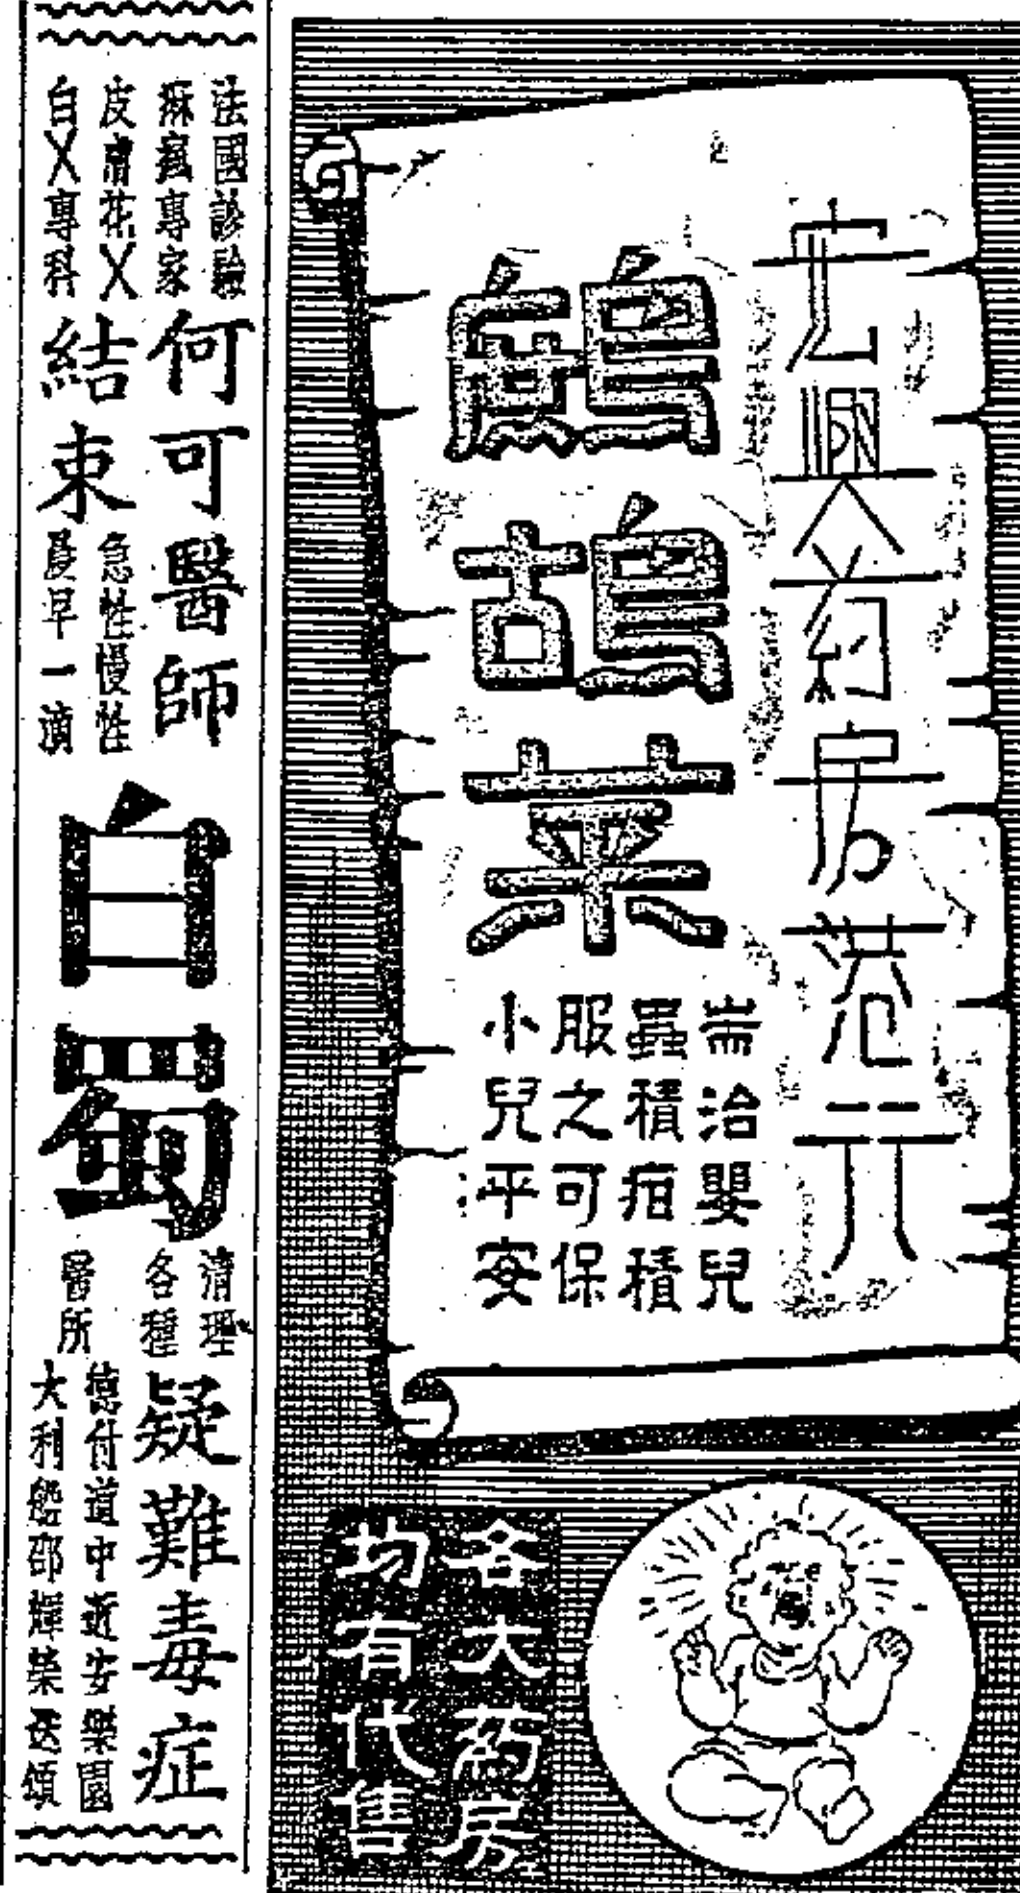 宏興公葯房港行
鷓鴣菜
耑治嬰兒
蟲積疳積
服之可保
小兒平安
各大葯房
均有代售
法國診驗
痳瘋專家
皮膚花X
白X專科
何可醫師
結束
急性慢性
早一滴
白蜀
清理
各種
疑難毒症
醫所
德付道中近安樂園
大利